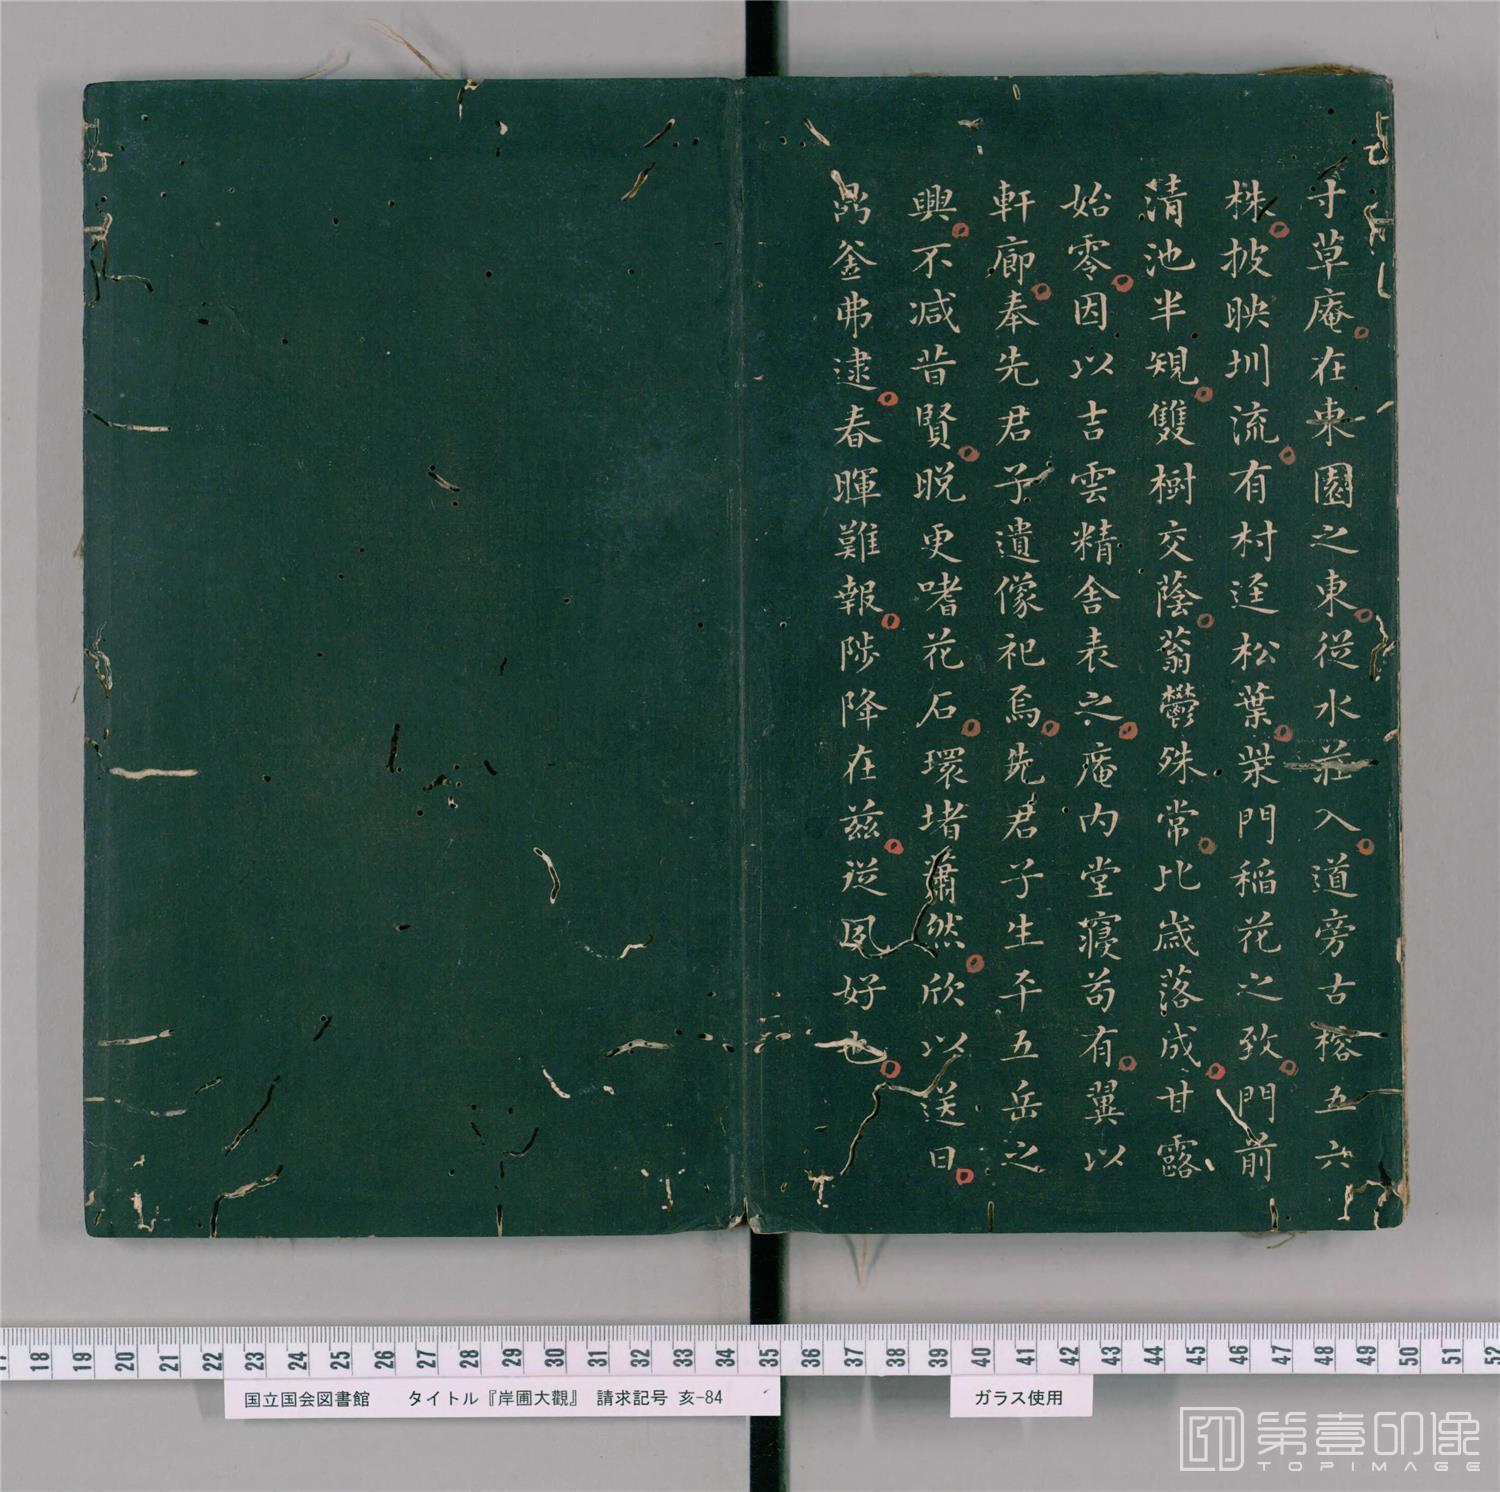 寸草庵在東園之東從水莊入道旁古榕五六
株披映圳流有村逕松葉柴門稻花之致門前
清池半規雙樹交蔭蓊鬱殊常比歲落成甘露
始零因以吉雲精舍表之庵內堂寢苟有翼以
軒廊奉先君子遺像祀焉先君子生平五岳之
興不减昔賢晚更嗜花石環堵蕭然欣以送日
鼎釜弗逮春暉難報陟降在茲從夙好也
17 18 19 20 21 22 23 24 25 26 27 28 29 30 31 32 33 34 35 36 37 38 39 40 41 42 43 44 45 46 47 48 49 50 51 52
国立国会図書館 タイトル『岸圃大觀』 請求記号 亥-84
ガラス使用
第壹印像
TOPIMAGE